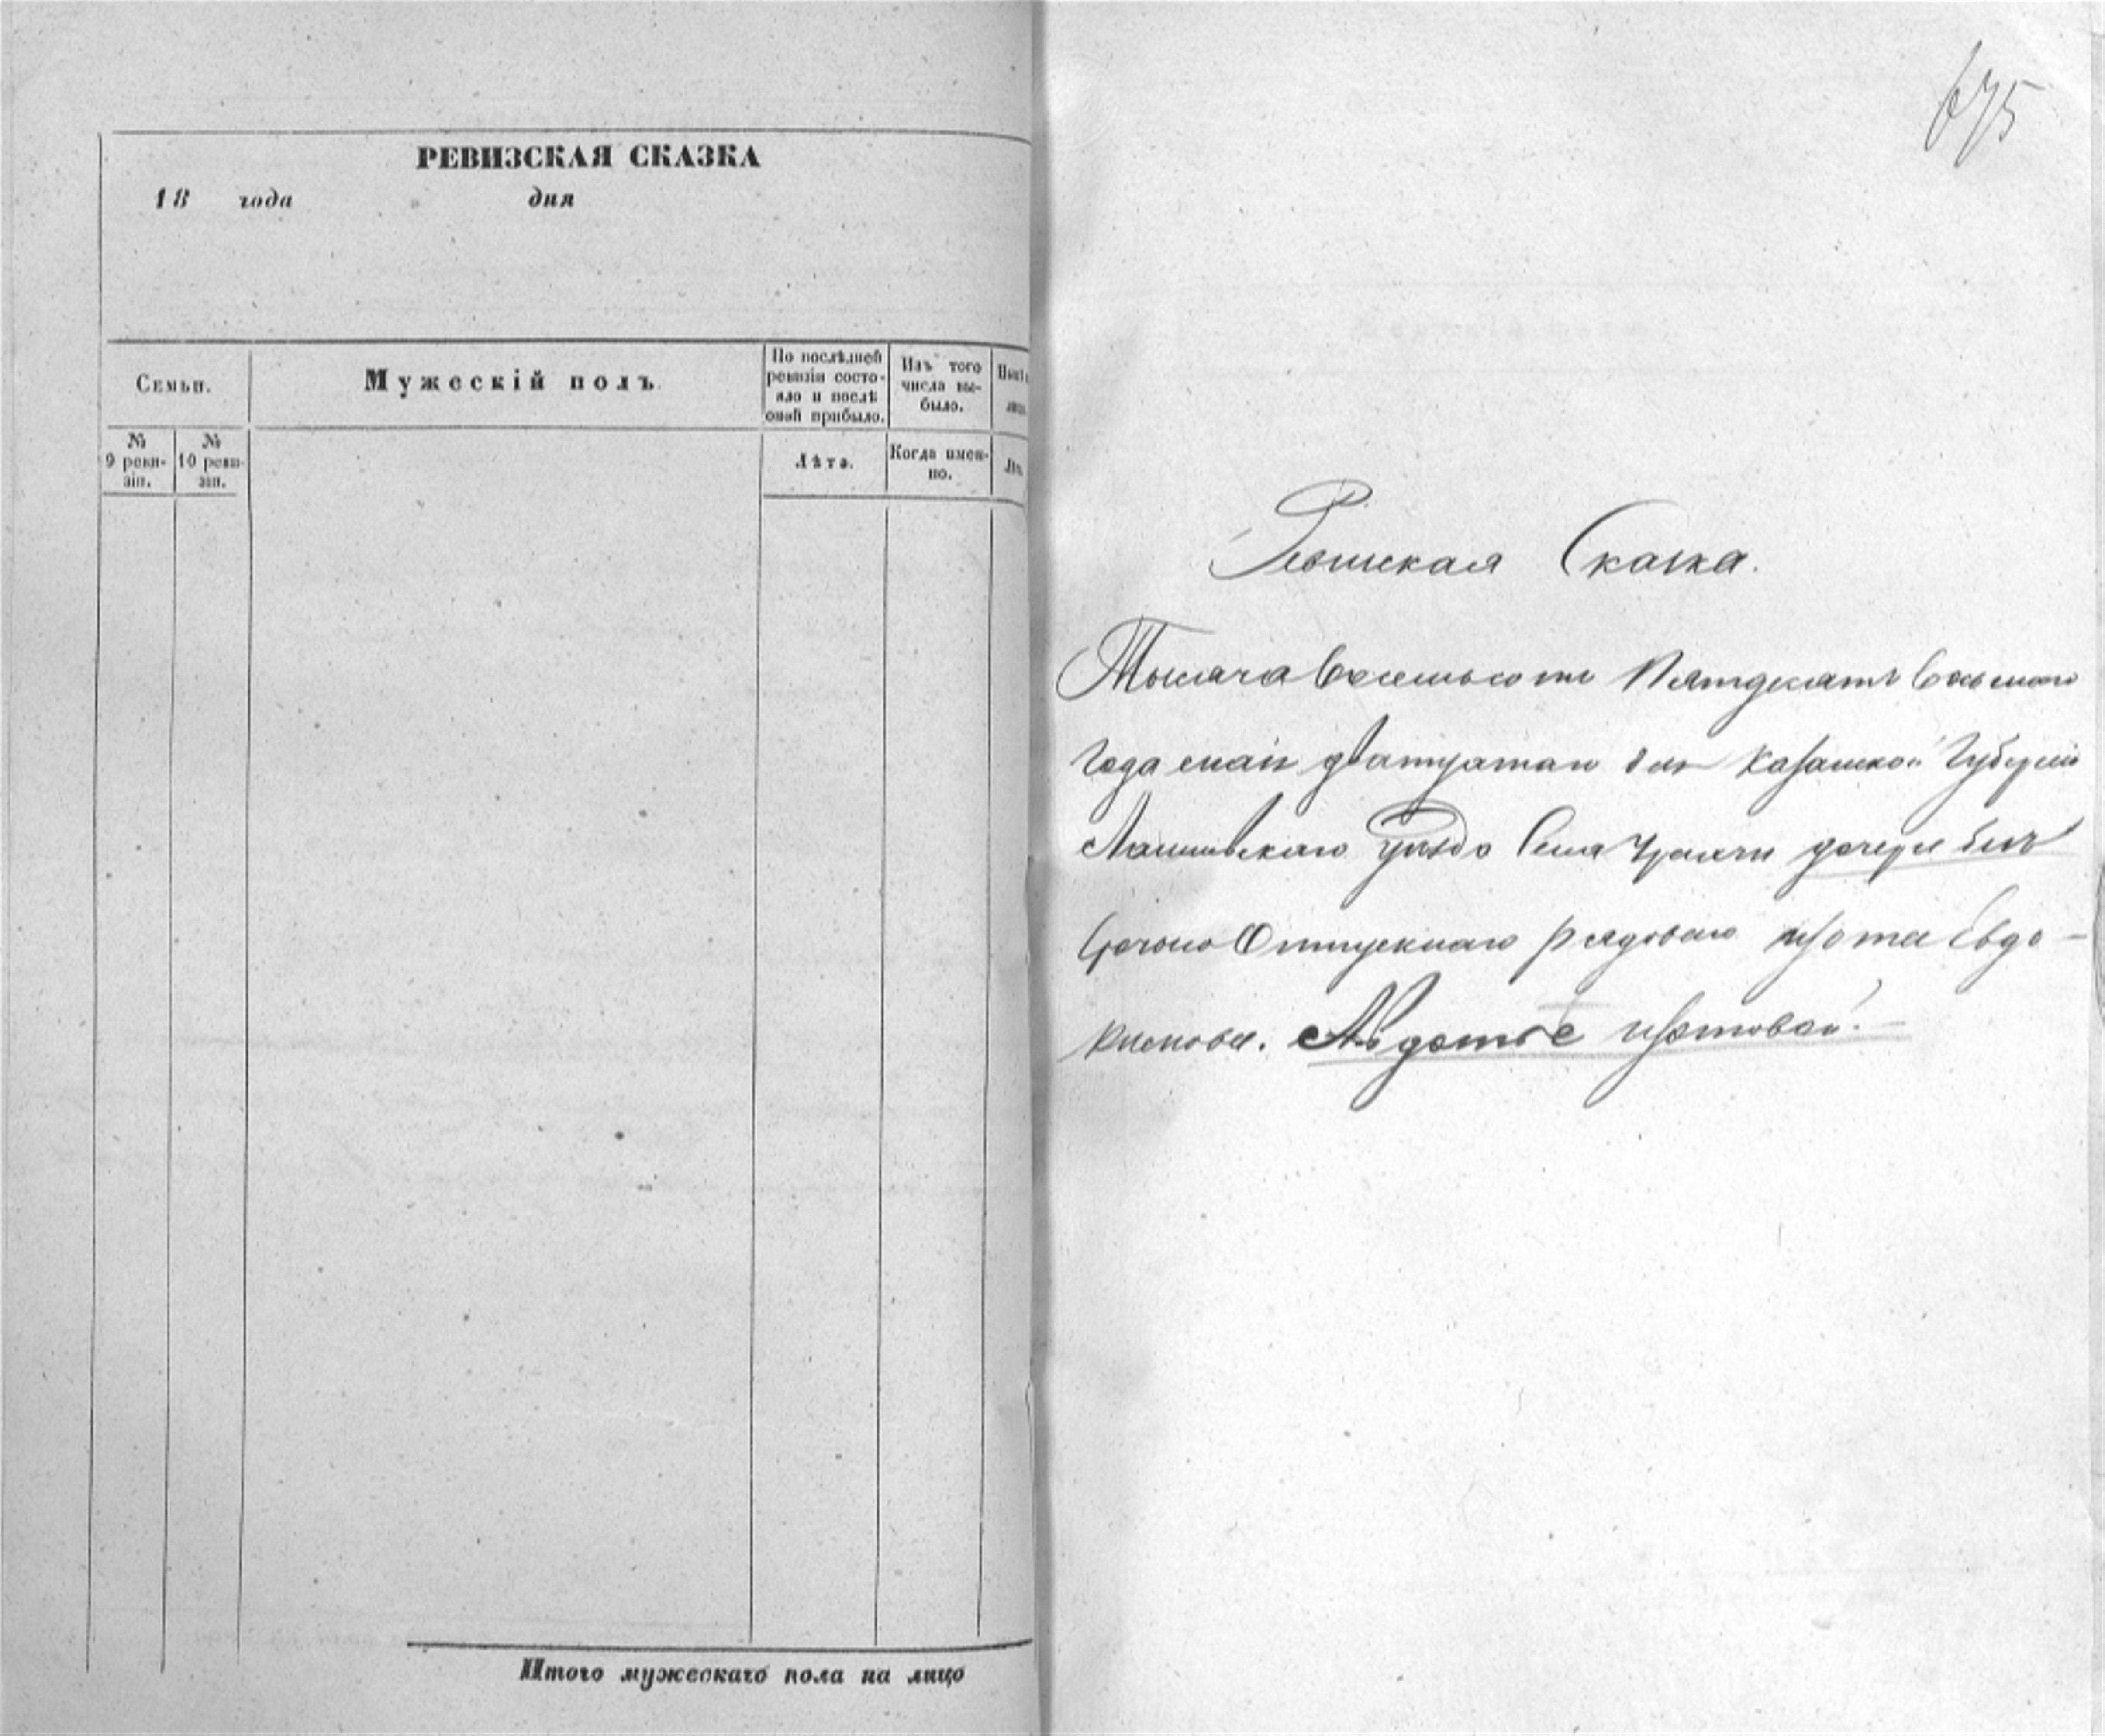 РЕВИЗСКАЯ СКАЗКА
18 года дня
Семьи.
Мужескій полъ.
По послѣдней ревизіи состо-
яло и послѣ
оной прибыло.
Изъ того
числа вы-
было.
№
9 реви-
зіи.
№
10 реви-
зіи.
Лѣта.
Когда имен-
но.
Итого мужескаго пола на лицо
675
Ревизская Сказка.
Тысяча восемьсотъ Пятдесятъ восьмаго
Года маія дватцатаго дня Казанской Губерніи
Лаишевскаго уѣзда Села дочери без
срочно Отпускнаго рядоваго Изота Евдо-
кимова. Авдотье Изотовой.